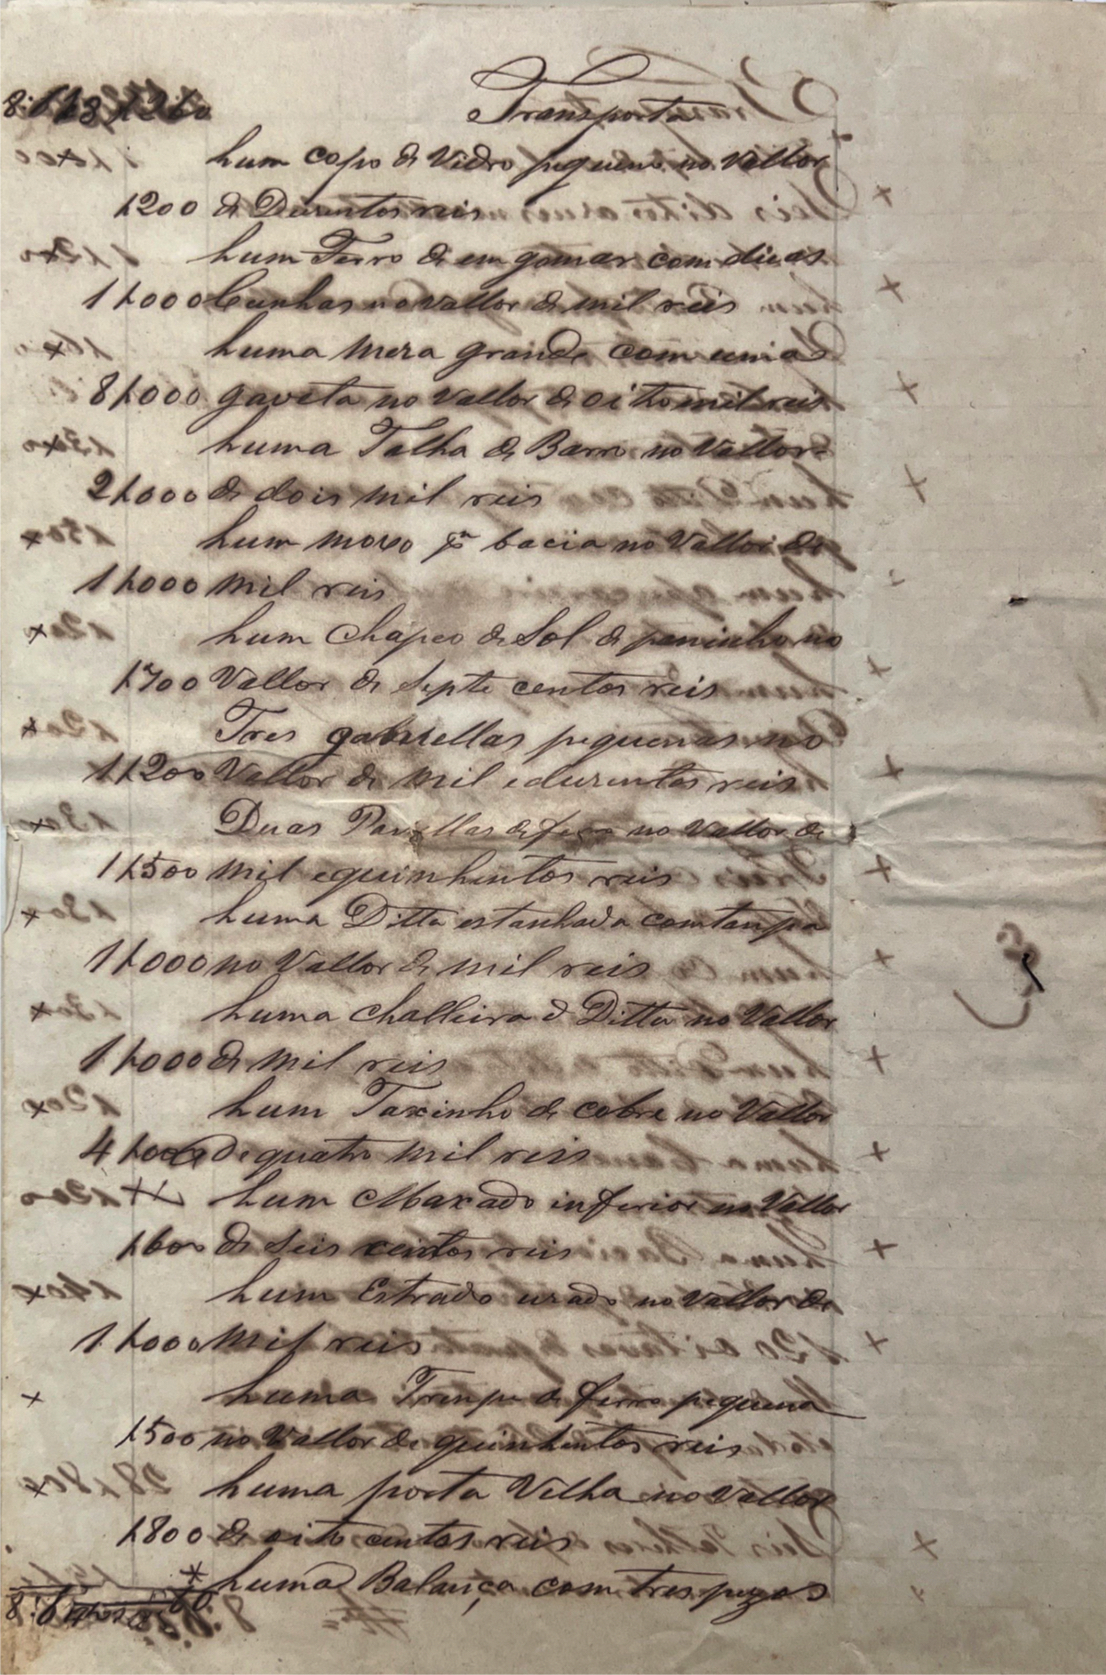 Transporte
hum copo de Vidro pequeno no Vallor
1200 de Duzentos reis
hum Ferro de em gomar com duas
1 1000 Cunhas no vallor de mil reis
huma Meza grande com uma
8 1000 gaveta no Vallor de oito mil reis
huma Talha de Barro no Vallor
2 1000 de dois mil reis
hum moxo pa bacia no Vallor de
1 1000 mil reis
hum Chapeo de Sol de paninho no
1700 Vallor de Septe centos reis
Tres gabriellas pequenas no
1 1200 Vallor de mil e duzentos reis
Duas Panellas de ferro no Vallor de
1 1500 mil equinhentos reis
huma Ditta estanhada com tanpa
1 1000 no Vallor de mil reis
huma challeira de Ditta no Vallor
1 1000 de mil reis
hum Taxinho de cobre no Vallor
4 1000 de quatro mil reis
hum Maxado inferior no Vallor
1600 de Seis centos reis
hum Estrado uzado no Vallor de
1 1000 mil reis
huma Trempe de ferro pequena
1500 no Vallor de quinhentos reis
huma porta Velha no Vallor
1800 de oito centos reis
huma Balança com tres pezos